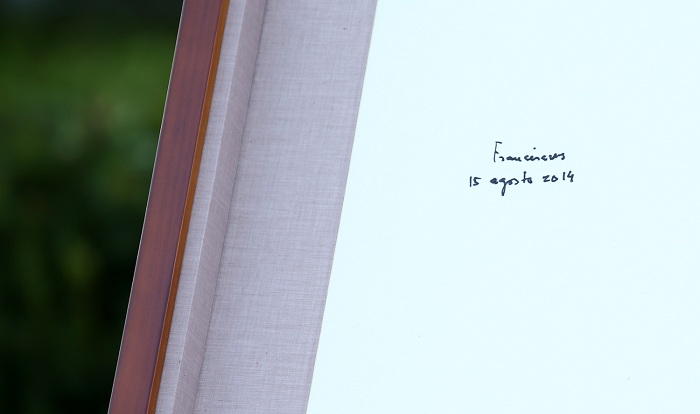 Franciscus
15 agosto 2014